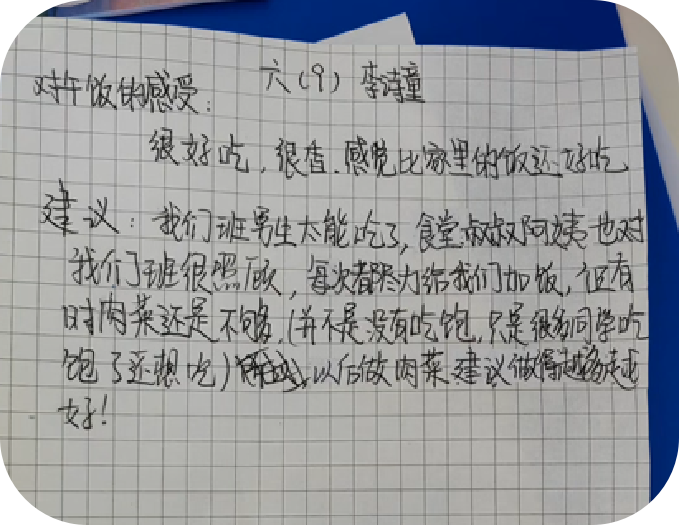 六(9) 李诗童
对午饭的感受:
很好吃,很香.感觉比家里的饭还好吃
建议:我们班男生太能吃了,食堂叔叔阿姨也对
我们班很照顾,每次都尽力给我们加饭,但有
时肉菜还是不够.(并不是没有吃饱,只是很多同学吃
饱了还想吃)以后做肉菜建议做得越多越
好!